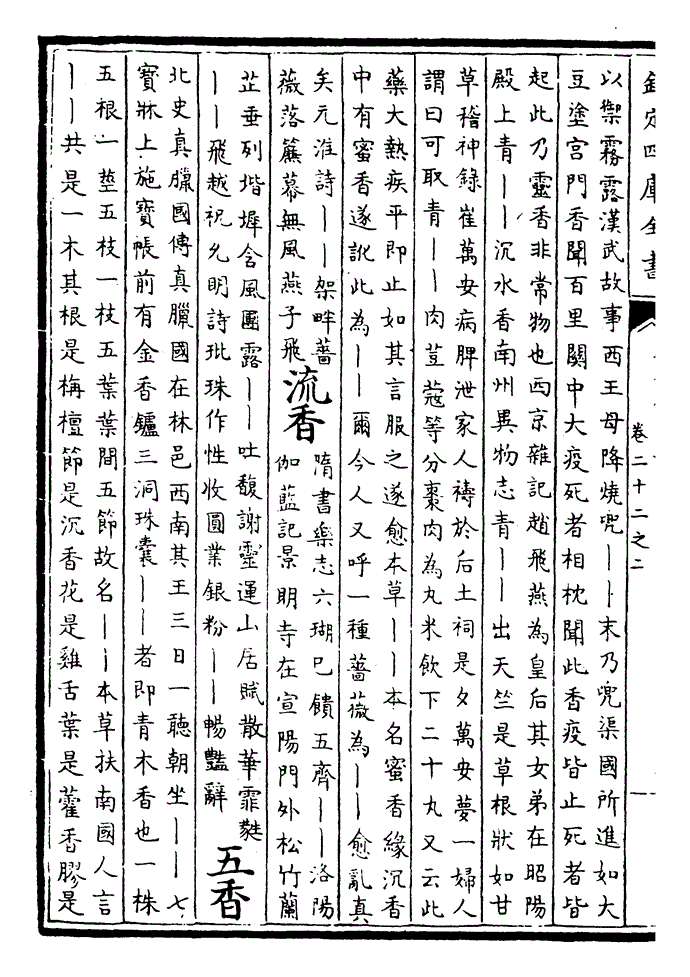 欽定四庫全書
卷二十二之二
以禦霧露漢武故事西王母降燒兜丨丨末乃兜渠國所進如大
豆塗宫門香聞百里闗中大疫死者相枕聞此香疫皆止死者皆
起此乃靈香非常物也西京雜記趙飛燕為皇后其女弟在昭陽
殿上青丨丨沉水香南州異物志青丨丨出天竺是草根狀如甘
草稽神錄崔萬安病脾泄家人禱於后土祠是夕萬安夢一婦人
謂曰可取青丨丨肉荳蔻等分棗肉為丸米飲下二十丸又云此
藥大熱疾平即止如其言服之遂愈本草丨丨本名蜜香緣沉香
中有蜜香遂訛此為丨丨爾今人又呼一種薔薇為丨丨愈亂真
矣元淮詩丨丨架畔薔
薇落簾幕無風燕子飛
流香
隋書樂志六瑚已饋五齊丨丨洛陽
伽藍記景明寺在宣陽門外松竹蘭
芷垂列堦墀含風團露丨丨吐馥謝靈運山居賦散華霏蕤
丨丨飛越祝允明詩玭珠作性收圓業銀粉丨丨暢豔辭
五香
北史真臘國傳真臘國在林邑西南其王三日一聽朝坐丨丨七
寶牀上施寶帳前有金香鑪三洞珠囊丨丨者即青木香也一株
五根一莖五枝一枝五葉葉間五節故名丨丨本草扶南國人言
丨丨共是一木其根是栴檀節是沉香花是雞舌葉是藿香膠是